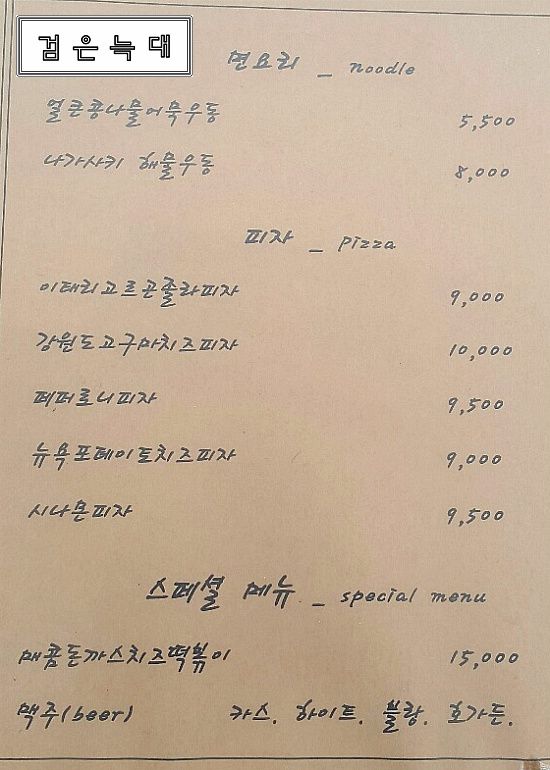 검은늑대
면요리 _ noodle
얼큰콩나물어묵우동 5,500
나가사키 해물우동 8,000
피자 _ pizza
이태리고르곤졸라피자 9,000
강원도고구마치즈피자 10,000
페퍼로니피자 9,500
뉴욕포테이토치즈피자 9,000
시나몬피자 9,500
스페셜 메뉴 _ special menu
매콤돈까스치즈떡볶이 15,000
맥주(beer) 카스. 하이트. 블랑. 호가든.